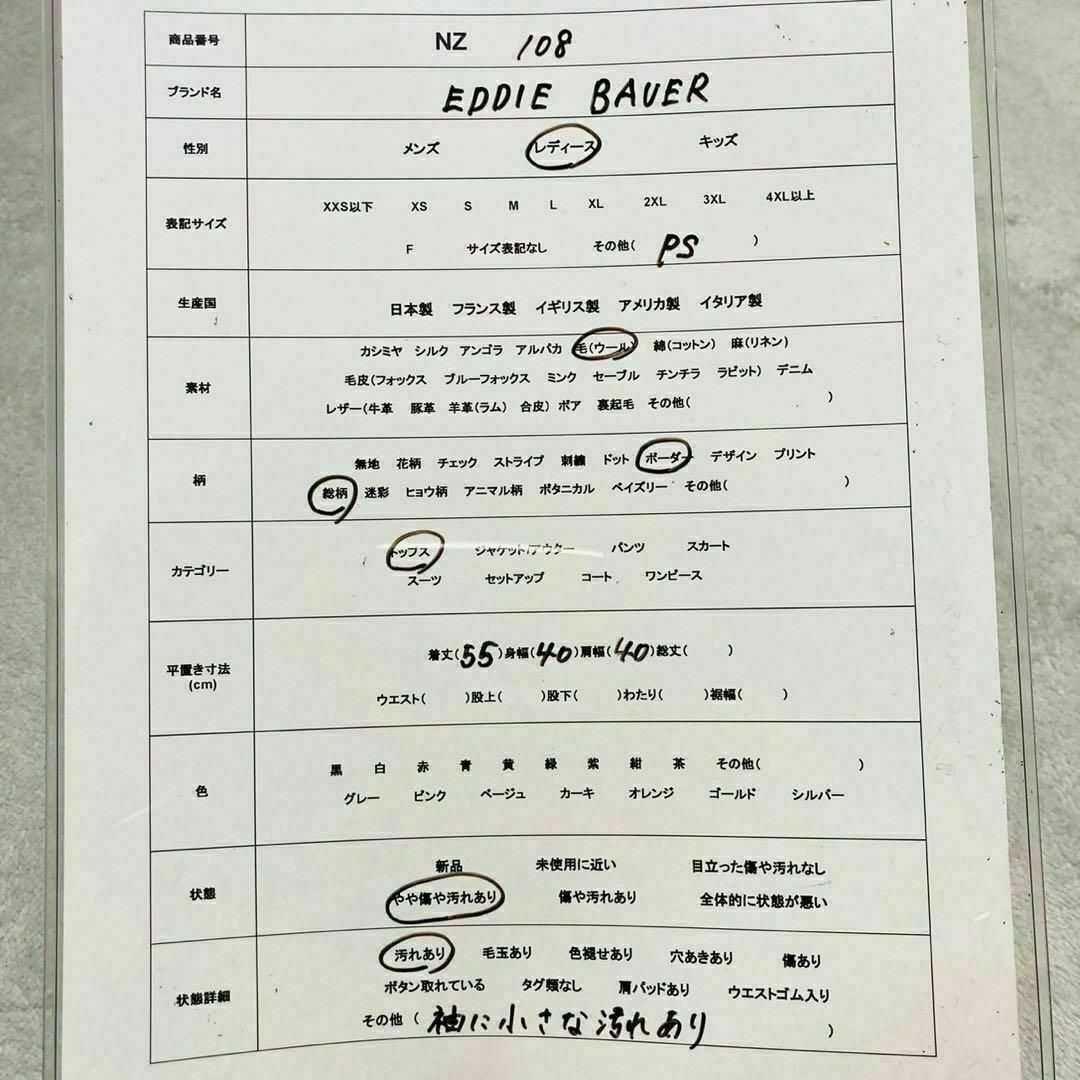 商品番号 NZ 108
ブランド名 EDDIE BAUER
性別 メンズ レディース キッズ
表記サイズ
XXS以下 XS S M L XL 2XL 3XL 4XL以上
F サイズ表記なし その他( PS )
生産国 日本製 フランス製 イギリス製 アメリカ製 イタリア製
素材
カシミヤ シルク アンゴラ アルパカ 毛(ウール) 綿(コットン) 麻(リネン)
毛皮(フォックス ブルーフォックス ミンク セーブル チンチラ ラビット) デニム
レザー(牛革 豚革 羊革(ラム) 合皮) ボア 裏起毛 その他( )
柄
無地 花柄 チェック ストライプ 刺繍 ドット ボーダー デザイン プリント
総柄 迷彩 ヒョウ柄 アニマル柄 ボタニカル ペイズリー その他( )
カテゴリー
トップス ジャケット/アウター パンツ スカート
スーツ セットアップ コート ワンピース
平置き寸法
(cm)
着丈(55)身幅(40)肩幅(40)総丈( )
ウエスト( )股上( )股下( )わたり( )裾幅( )
色
黒 白 赤 青 黄 緑 紫 紺 茶 その他( )
グレー ピンク ベージュ カーキ オレンジ ゴールド シルバー
状態
新品 未使用に近い 目立った傷や汚れなし
やや傷や汚れあり 傷や汚れあり 全体的に状態が悪い
状態詳細
汚れあり 毛玉あり 色褪せあり 穴あきあり 傷あり
ボタン取れている タグ類なし 肩パッドあり ウエストゴム入り
その他 ( 袖に小さな汚れあり )